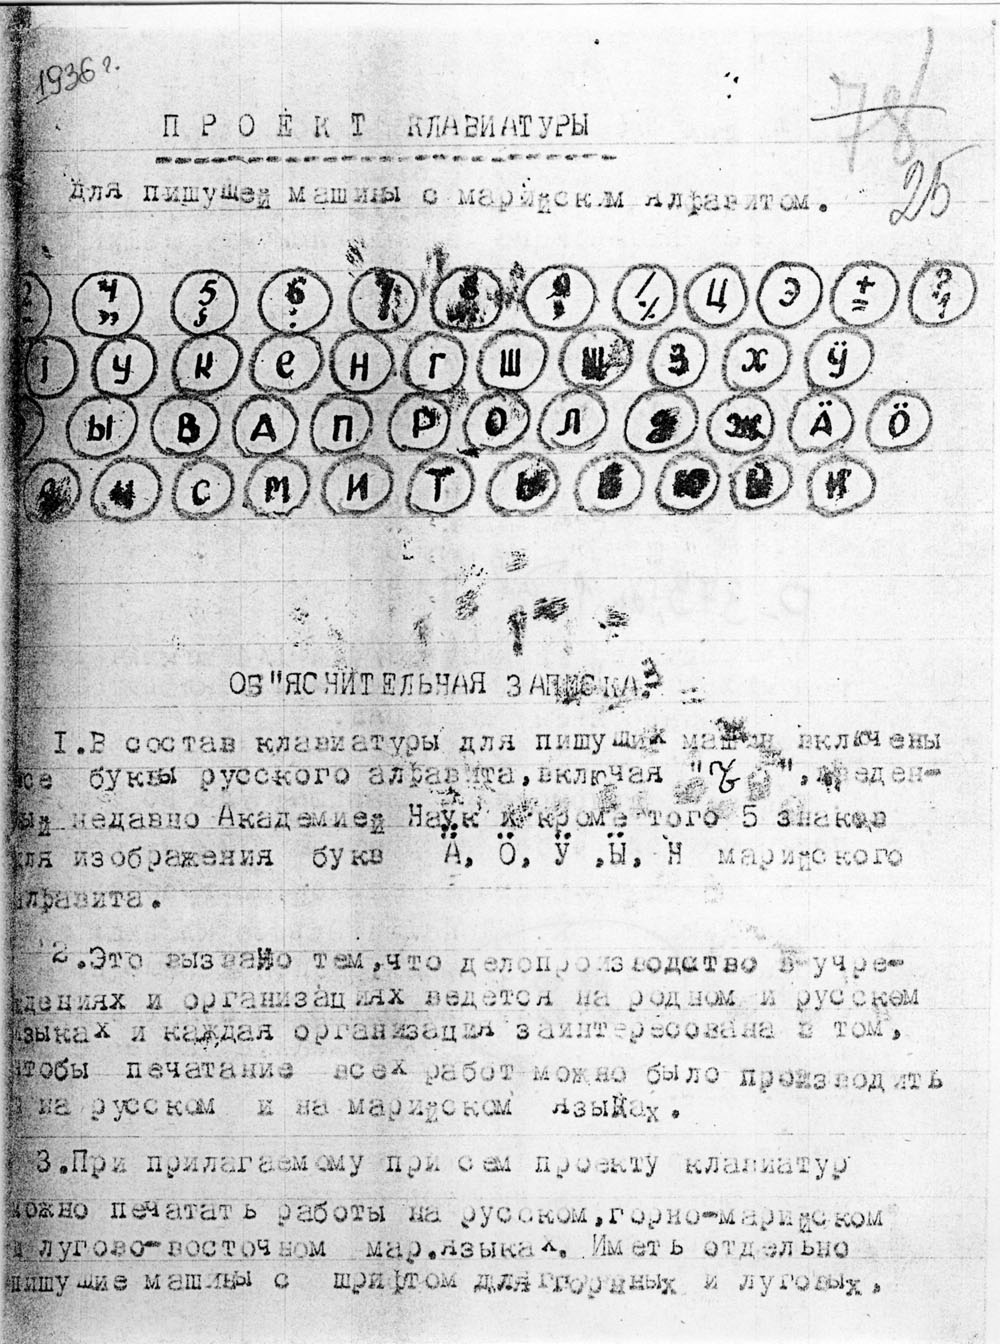 1936 г.
78
25
П Р О Е К Т КЛАВИАТУРЫ
Для пишущей машины с марийским алфавитом.
4 " 5 6 7 8 9 % Ц Э + = ?
У К Е Н Г Ш Щ З Х Ӱ
Ы В А П Р О Л Ж Ӓ Ӧ
С М И Т
ОБ"ЯСНИТЕЛЬНАЯ ЗАПИСКА.
I.В состав клавиатуры для пишущих машин включены
все буквы русского алфавита,включая " ",введен-
ый недавно Академией Наук и кроме того 5 знаков
для изображения букв Ӓ, Ӧ, Ӱ ,Ӹ, Н марийского
алфавита.
2.Это вызвано тем,что делопроизводство в учре-
ждениях и организациях ведется на родном и русском
языках и каждая организация заинтересована в том,
чтобы печатание всех работ можно было производить
на русском и на марийском языках.
3.При прилагаемому при сем проекту клавиатур
можно печатать работы на русском,горно-марийском
лугово-восточном мар.языках. Иметь отдельно
пишущие машины с шрифтом для горных и луговых.